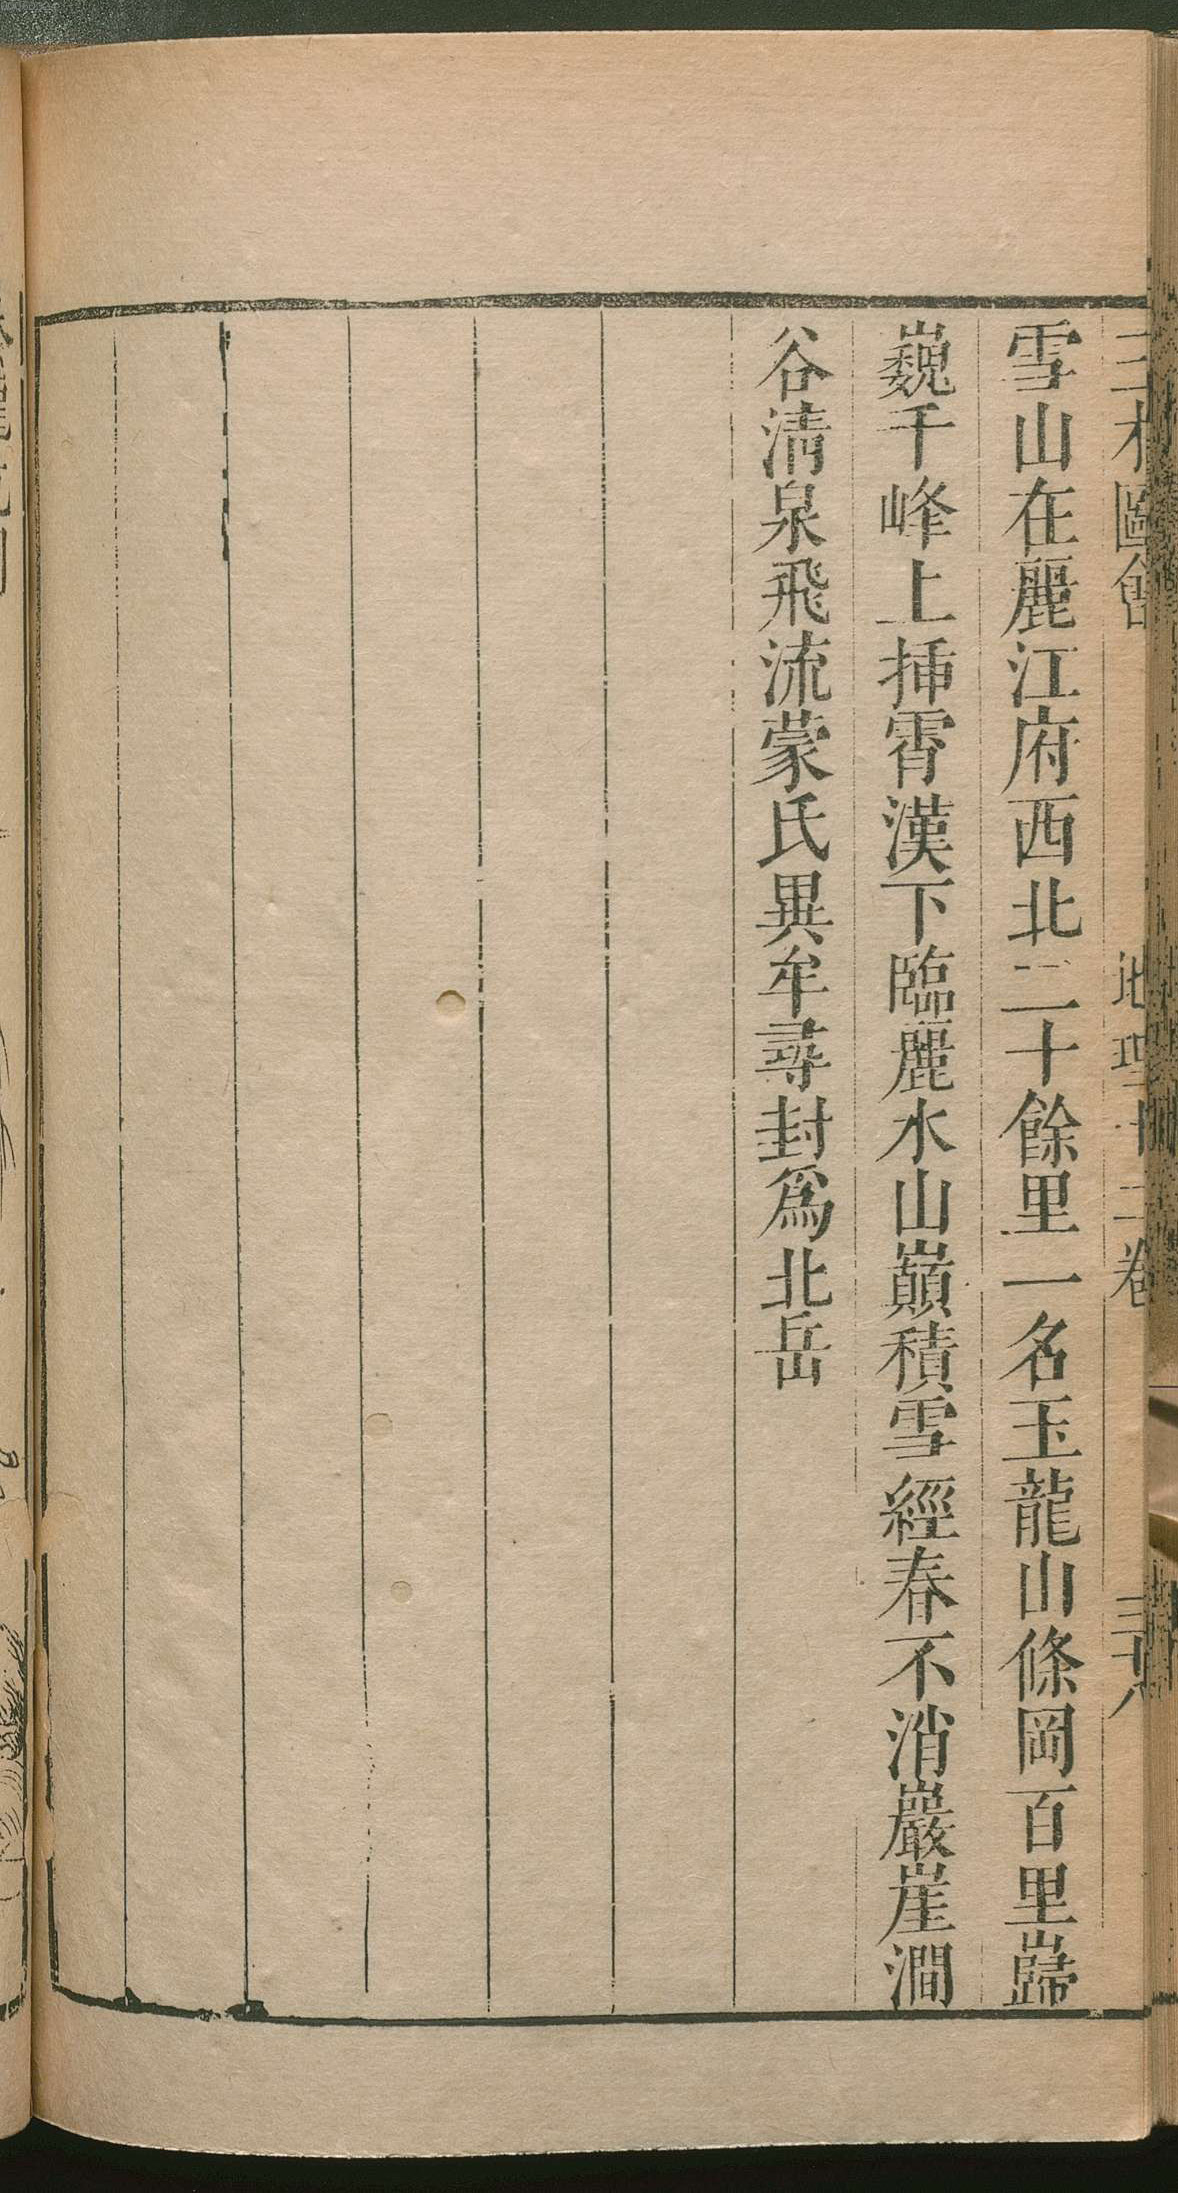 三才圖會 地理十二卷 三十八
雪山在麗江府西北二十餘里一名玉龍山條岡百里巋
巍千峰上揷霄漢下臨麗水山巔積雪經春不消巖崖澗
谷清泉飛流蒙氏異牟尋封爲北岳